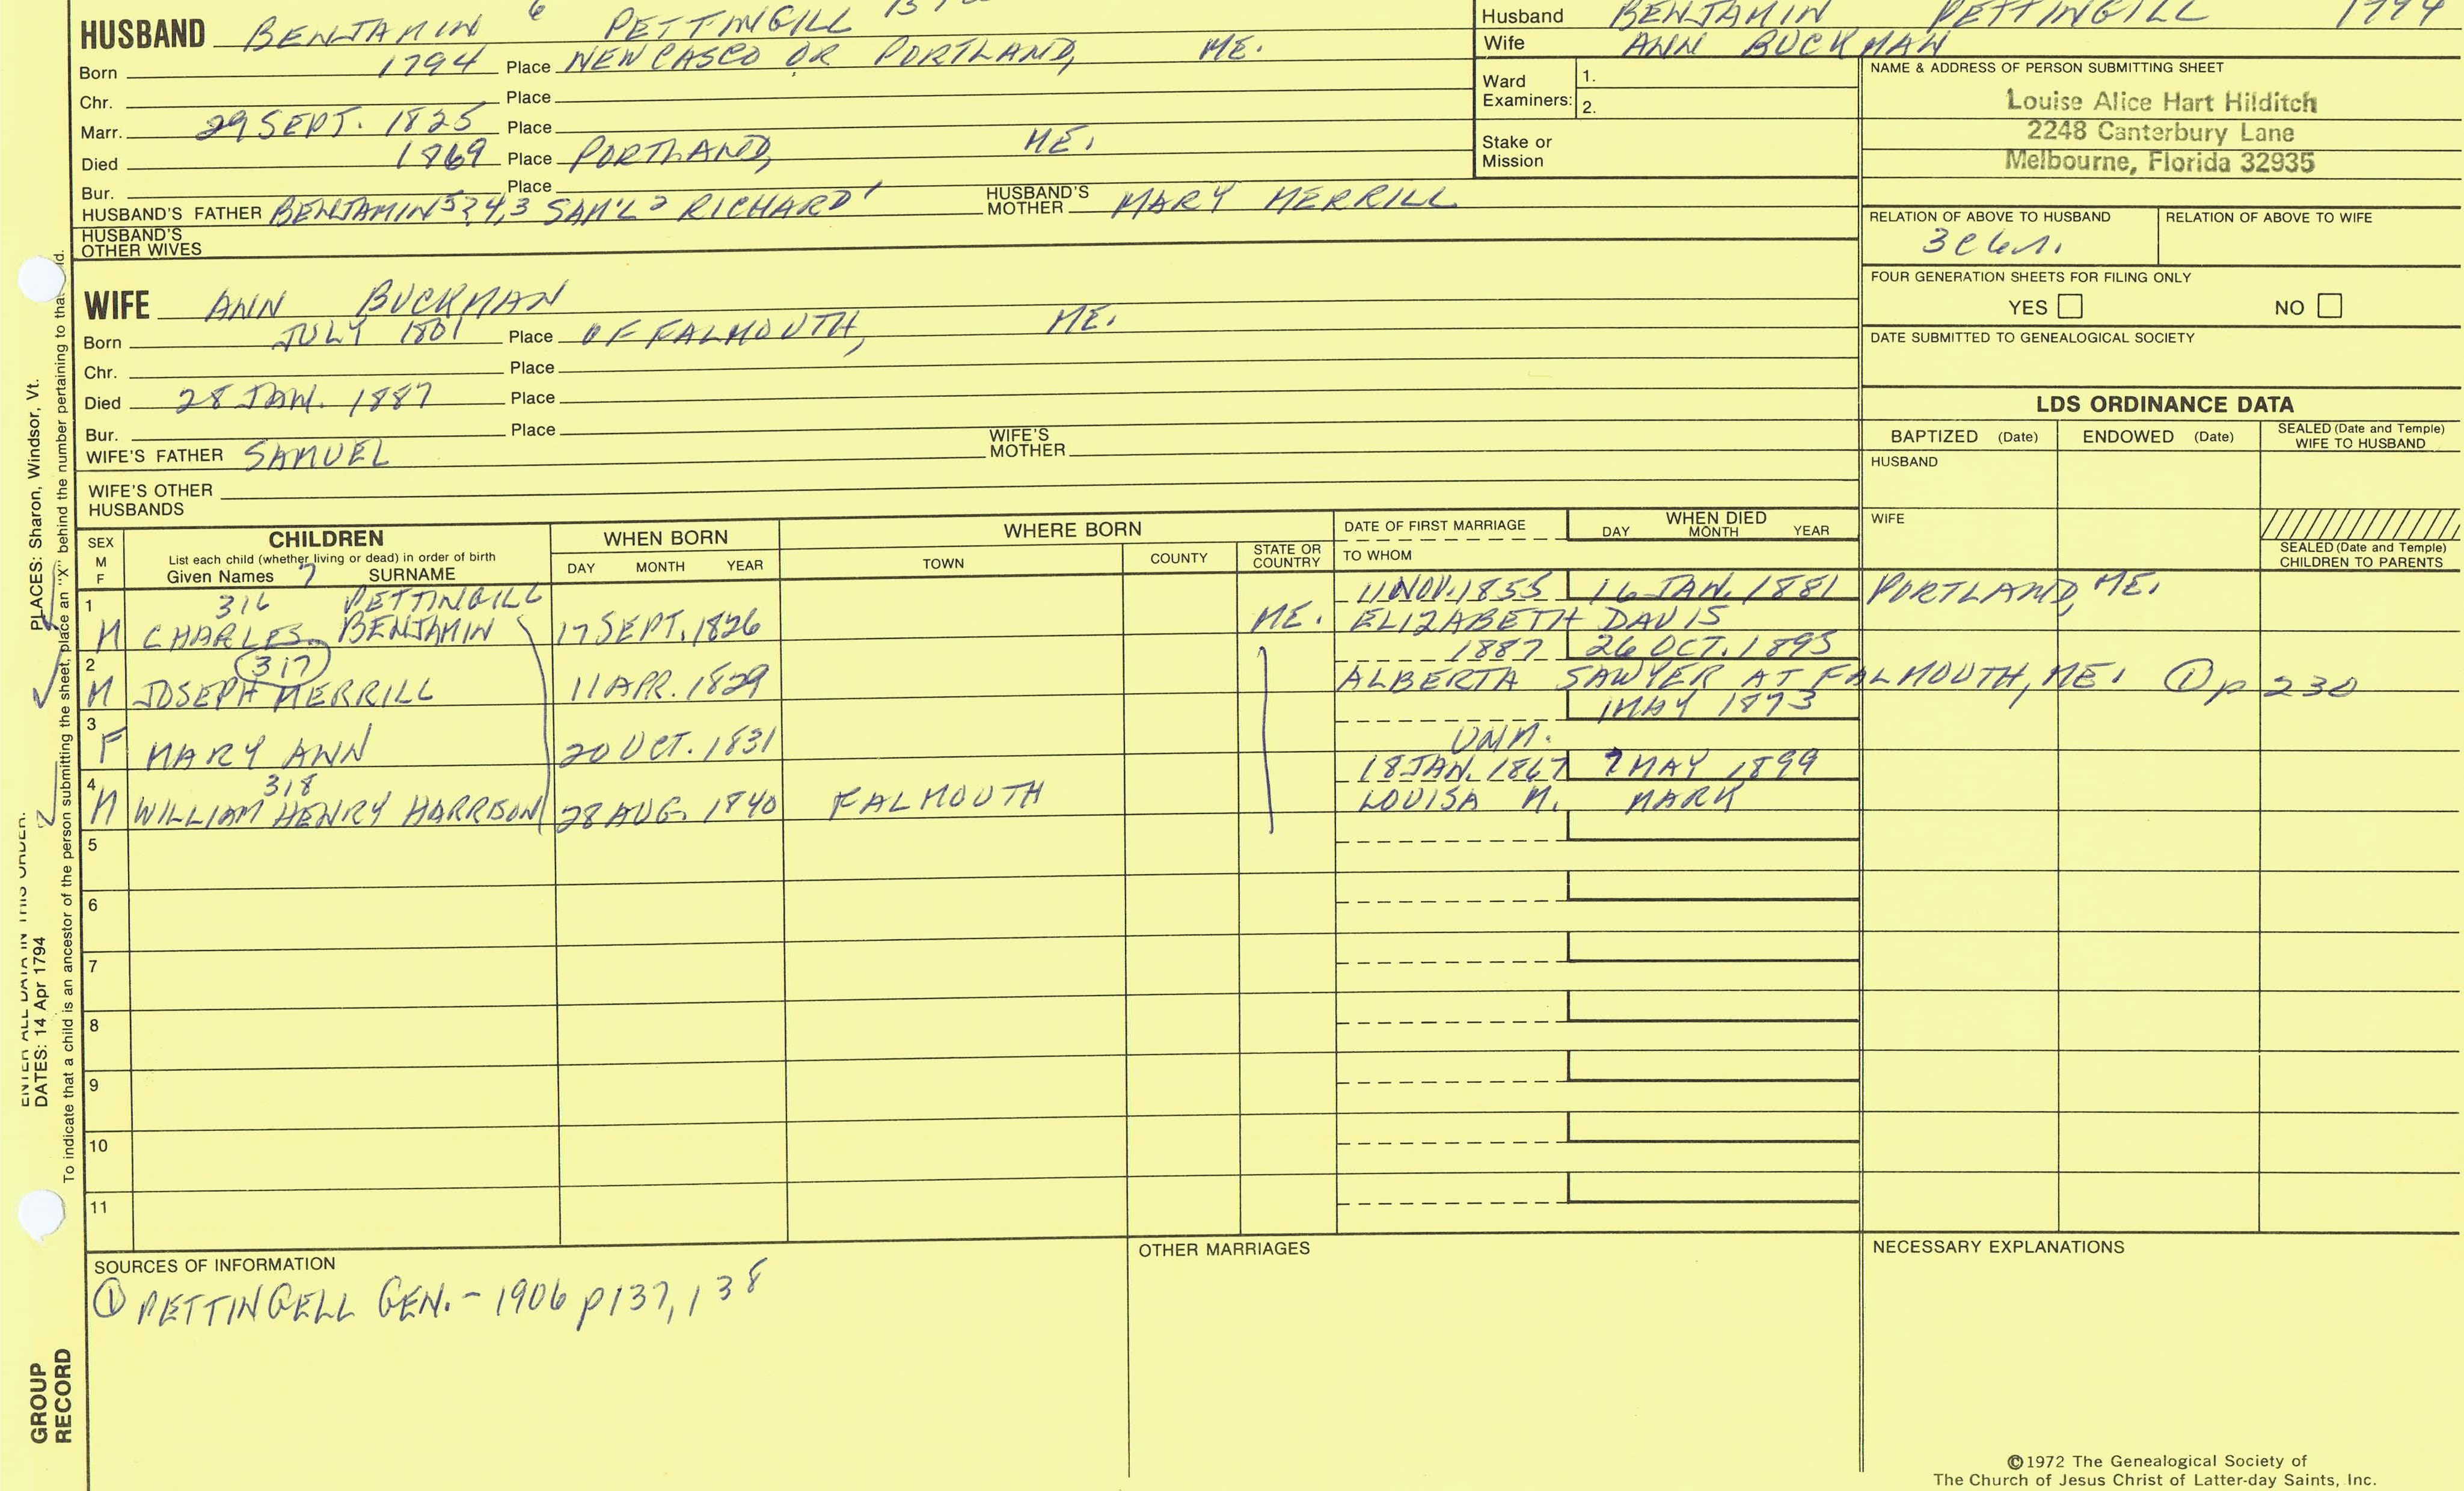 HUSBAND BENJAMIN 6 PETTINGILL
Born 1794 Place NEW CASCO OR PORTLAND, ME.
Chr. Place
Marr. 29 SEPT. 1825 Place
Died 1869 Place PORTLAND, ME.
Bur. Place
HUSBAND'S FATHER BENJAMIN 5?4,3 SAM'L 2 RICHARD 1 HUSBAND'S MOTHER MARY MERRILL
HUSBAND'S
OTHER WIVES
Husband BENJAMIN PETTINGILL 1794
Wife ANN BUCKMAN
Ward
Examiners: 1.
2.
Stake or
Mission
NAME & ADDRESS OF PERSON SUBMITTING SHEET
Louise Alice Hart Hilditch
2248 Canterbury Lane
Melbourne, Florida 32935
RELATION OF ABOVE TO HUSBAND RELATION OF ABOVE TO WIFE
FOUR GENERATION SHEETS FOR FILING ONLY
YES NO
DATE SUBMITTED TO GENEALOGICAL SOCIETY
WIFE ANN BUCKMAN
Born JULY 1801 Place OF FALMOUTH, ME.
Chr. Place
Died 28 JAN. 1887 Place
Bur. Place
WIFE'S FATHER SAMUEL WIFE'S MOTHER
WIFE'S OTHER
HUSBANDS
LDS ORDINANCE DATA
BAPTIZED (Date) ENDOWED (Date) SEALED (Date and Temple) WIFE TO HUSBAND
HUSBAND
WIFE
SEALED (Date and Temple)
CHILDREN TO PARENTS
SEX
M
F
CHILDREN
List each child (whether living or dead) in order of birth
Given Names 7 SURNAME
WHEN BORN
DAY MONTH YEAR
WHERE BORN
TOWN COUNTY STATE OR COUNTRY
DATE OF FIRST MARRIAGE
TO WHOM
WHEN DIED
DAY MONTH YEAR
1 316 PETTINGILL 11 NOV. 1855 16 JAN. 1881 PORTLAND, ME.
M CHARLES BENJAMIN 17 SEPT. 1826 ME. ELIZABETH DAVIS
2 317 1887 26 OCT. 1895
M JOSEPH MERRILL 11 APR. 1829 ALBERTA SAWYER AT FALMOUTH, ME. ① p 230
3 1 MAY 1873
F MARY ANN 20 OCT. 1831 UNM.
4 318 18 JAN. 1867 7 MAY 1899
M WILLIAM HENRY HARRISON 28 AUG. 1840 FALMOUTH LOUISA M. MARK
5
6
7
8
9
10
11
SOURCES OF INFORMATION
① PETTINGELL GEN. - 1906 p 137, 138
OTHER MARRIAGES
NECESSARY EXPLANATIONS
©1972 The Genealogical Society of
The Church of Jesus Christ of Latter-day Saints, Inc.
ENTER ALL DATA IN THIS ORDER:
DATES: 14 Apr 1794 PLACES: Sharon, Windsor, Vt.
To indicate that a child is an ancestor of the person submitting the sheet, place an "X" behind the number pertaining to that
GROUP
RECORD